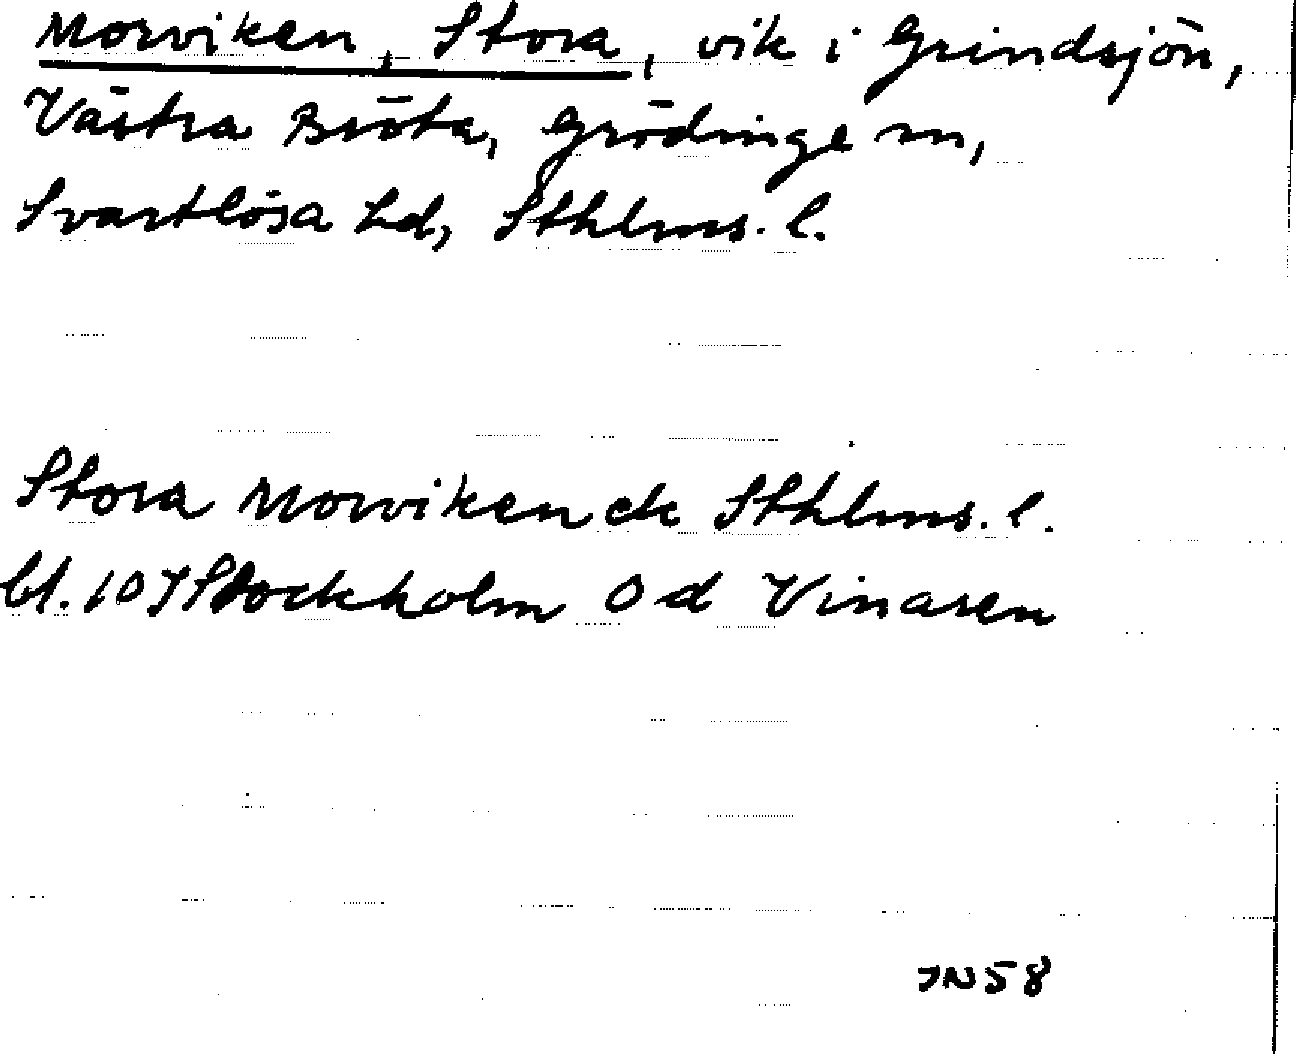 Morviken, Stora, vik i Grindsjön,
Västra Bröta, Grödinge sn,
Svartlösa hd, Sthlms. l.
Stora Morviken ek Sthlms. l.
bl. 10I Stockholm Od Vinaren
JN58